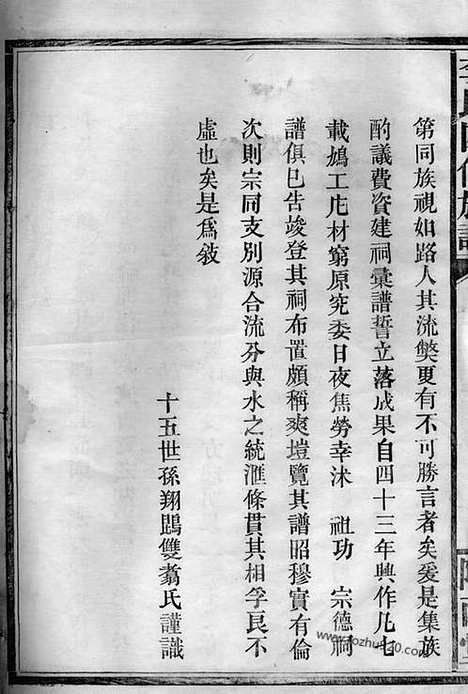 第同族視如路人其流獘更有不可勝言者矣爰是集族
酌議費資建祠彙譜誓立落成果自四十三年興作凡七
載鳩工庀材窮原究委日夜焦勞幸沐 祖功 宗德祠
譜俱已告竣登其祠布置頗稱爽塏覽其譜昭穆實有倫
次則宗同支別源合流分與水之統滙條貫其相孚良不
虛也矣是爲敍
十五世孫翔鵾雙翥氏謹識